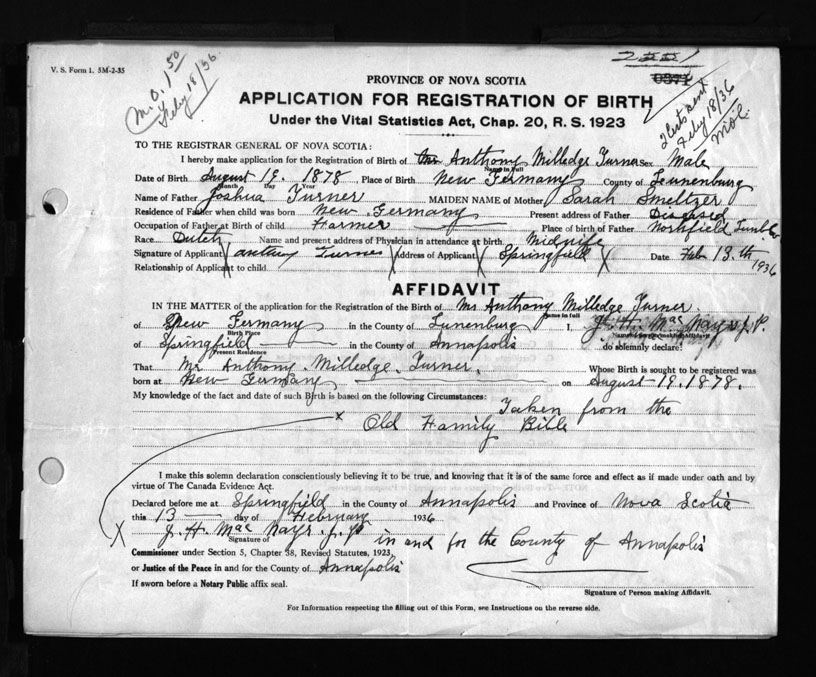 V. S. Form 1. 5M-2-35
M.O. 1 50
Feby 18/36
0371
PROVINCE OF NOVA SCOTIA
APPLICATION FOR REGISTRATION OF BIRTH
Under the Vital Statistics Act, Chap. 20, R. S. 1923
Feby 18/36
TO THE REGISTRAR GENERAL OF NOVA SCOTIA:
I hereby make application for the Registration of Birth of Anthony Milledge Turner Sex Male
Name in Full
Date of Birth August 19. 1878, Place of Birth New Germany County of Lunenburg
Month Day Year
Name of Father Joshua Turner MAIDEN NAME of Mother Sarah Smeltzer
Residence of Father when child was born New Germany Present address of Father Diseased
Occupation of Father at Birth of child Farmer Place of birth of Father Northfield
Race Dutch Name and present address of Physician in attendance at birth Midnife
Signature of Applicant Anthony Turner Address of Applicant Springfield Date Feb 13.th 1936
Relationship of Applicant to child
AFFIDAVIT
IN THE MATTER of the application for the Registration of the Birth of Mr Anthony Milledge Turner
Name in full
of New Germany in the County of Lunenburg I, J. H. Mac Nayr J.P.
Birth Place
of Springfield in the County of Annapolis do solemnly declare:
Present Residence
That Mr Anthony Milledge Turner. Whose Birth is sought to be registered was
born at New Germany on August 19. 1878.
My knowledge of the fact and date of such Birth is based on the following Circumstances: Taken from the
x Old Family Bible
I make this solemn declaration conscientiously believing it to be true, and knowing that it is of the same force and effect as if made under oath and by
virtue of The Canada Evidence Act.
Declared before me at Springfield in the County of Annapolis and Province of Nova Scotia
this 13 day of February 1936
X J. H. Mac Nayr. J. P. in and for the County of Annapolis
Signature of
Commissioner under Section 5, Chapter 38, Revised Statutes, 1923,
or Justice of the Peace in and for the County of Annapolis
If sworn before a Notary Public affix seal.
Signature of Person making Affidavit.
For Information respecting the filling out of this Form, see Instructions on the reverse side.